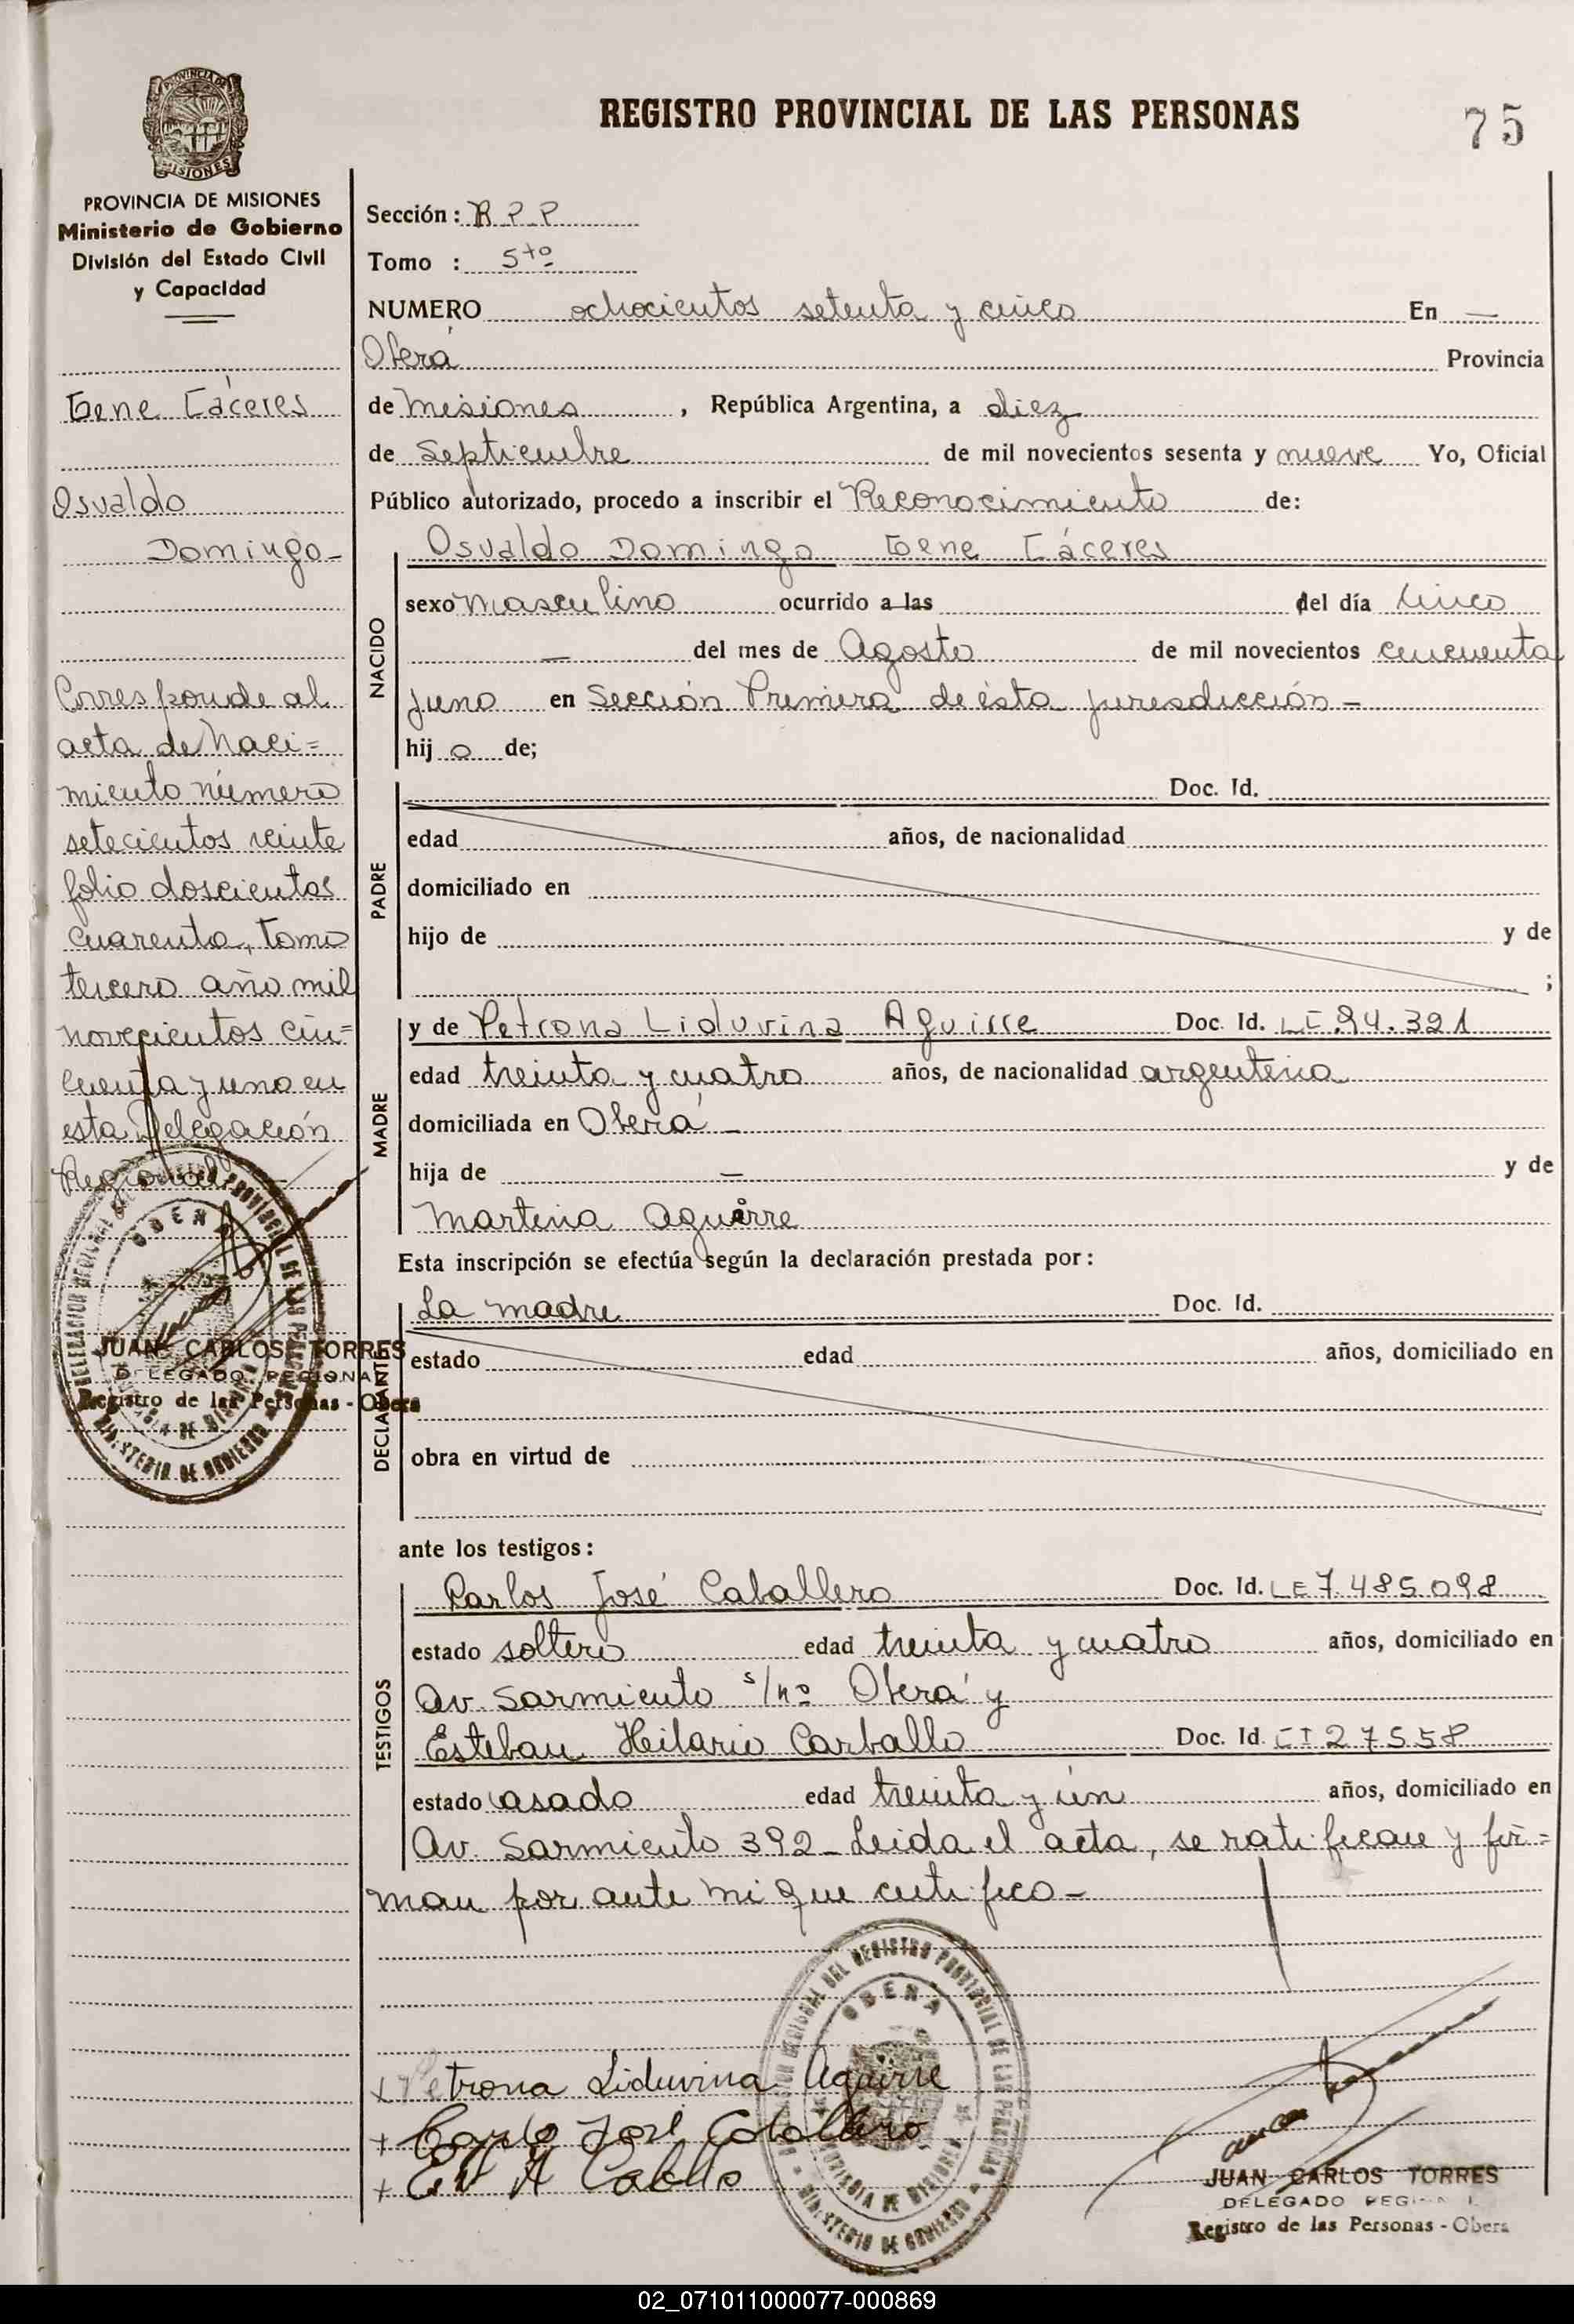 REGISTRO PROVINCIAL DE LAS PERSONAS
75
PROVINCIA DE MISIONES
MISIONES
PROVINCIA DE MISIONES
Ministerio de Gobierno
División del Estado Civil
y Capacidad
Cáceres
Osvaldo
Domingo-
Corresponde al
acta de Naci=
miento número
setecientos veinte
folio doscientos
cuarenta, tomo
tercero año mil
novecientos cin=
cuenta y uno en
esta Delegación
Regional.
JUAN CARLOS TORRES
DELEGADO REGIONAL
Registro de las Personas - Obera
Sección: R P P
Tomo : 5to
NUMERO ochocientos setenta y cinco En —
Oberá Provincia
de Misiones, República Argentina, a diez
de Septiembre de mil novecientos sesenta y nueve Yo, Oficial
Público autorizado, procedo a inscribir el Reconocimiento de:
Osvaldo Domingo Cáceres
NACIDO
sexo Masculino ocurrido a las del día cinco
— del mes de Agosto de mil novecientos cincuenta
y uno en Sección Primera de ésta jurisdicción -
hij o de;
PADRE
Doc. Id.
edad años, de nacionalidad
domiciliado en
hijo de y de
;
MADRE
y de Petrona Liduvina Aguirre Doc. Id. LC 94.321
edad treinta y cuatro años, de nacionalidad argentina
domiciliada en Oberá -
hija de — y de
Martina Aguirre
Esta inscripción se efectúa según la declaración prestada por:
DECLARANTE
La madre Doc. Id.
estado edad años, domiciliado en
obra en virtud de
ante los testigos:
TESTIGOS
Carlos José Caballero Doc. Id. LE 7.485.098
estado soltero edad treinta y cuatro años, domiciliado en
Av. Sarmiento s/nº Oberá y
Esteban Hilario Carballo Doc. Id. CI 27558
estado casado edad treinta y ún años, domiciliado en
Av. Sarmiento 392- Leida el acta, se ratifican y fir=
man por ante mi que certifico-
x Petrona Liduvina Aguirre
+ Carlo José Caballero
+
DELEGACION REGIONAL DEL REGISTRO PROVINCIAL DE LAS PERSONAS
OBERA
PROVINCIA DE MISIONES
MINISTERIO DE GOBIERNO
JUAN CARLOS TORRES
DELEGADO REGIONAL
Registro de las Personas - Obera
02_071011000077-000869